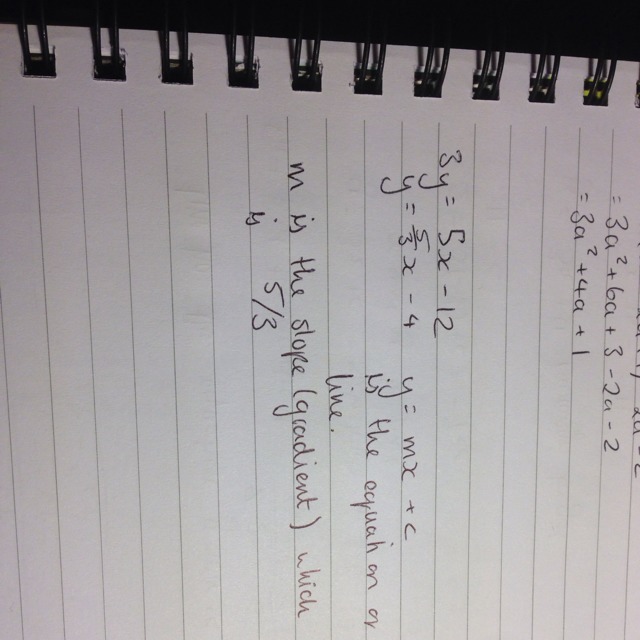 = 3a² + 6a + 3 - 2a - 2
= 3a² + 4a + 1
3y = 5x - 12
y = 5/3 x - 4 y = mx + c
is the equation of
line.
m is the slope (gradient) which
is 5/3